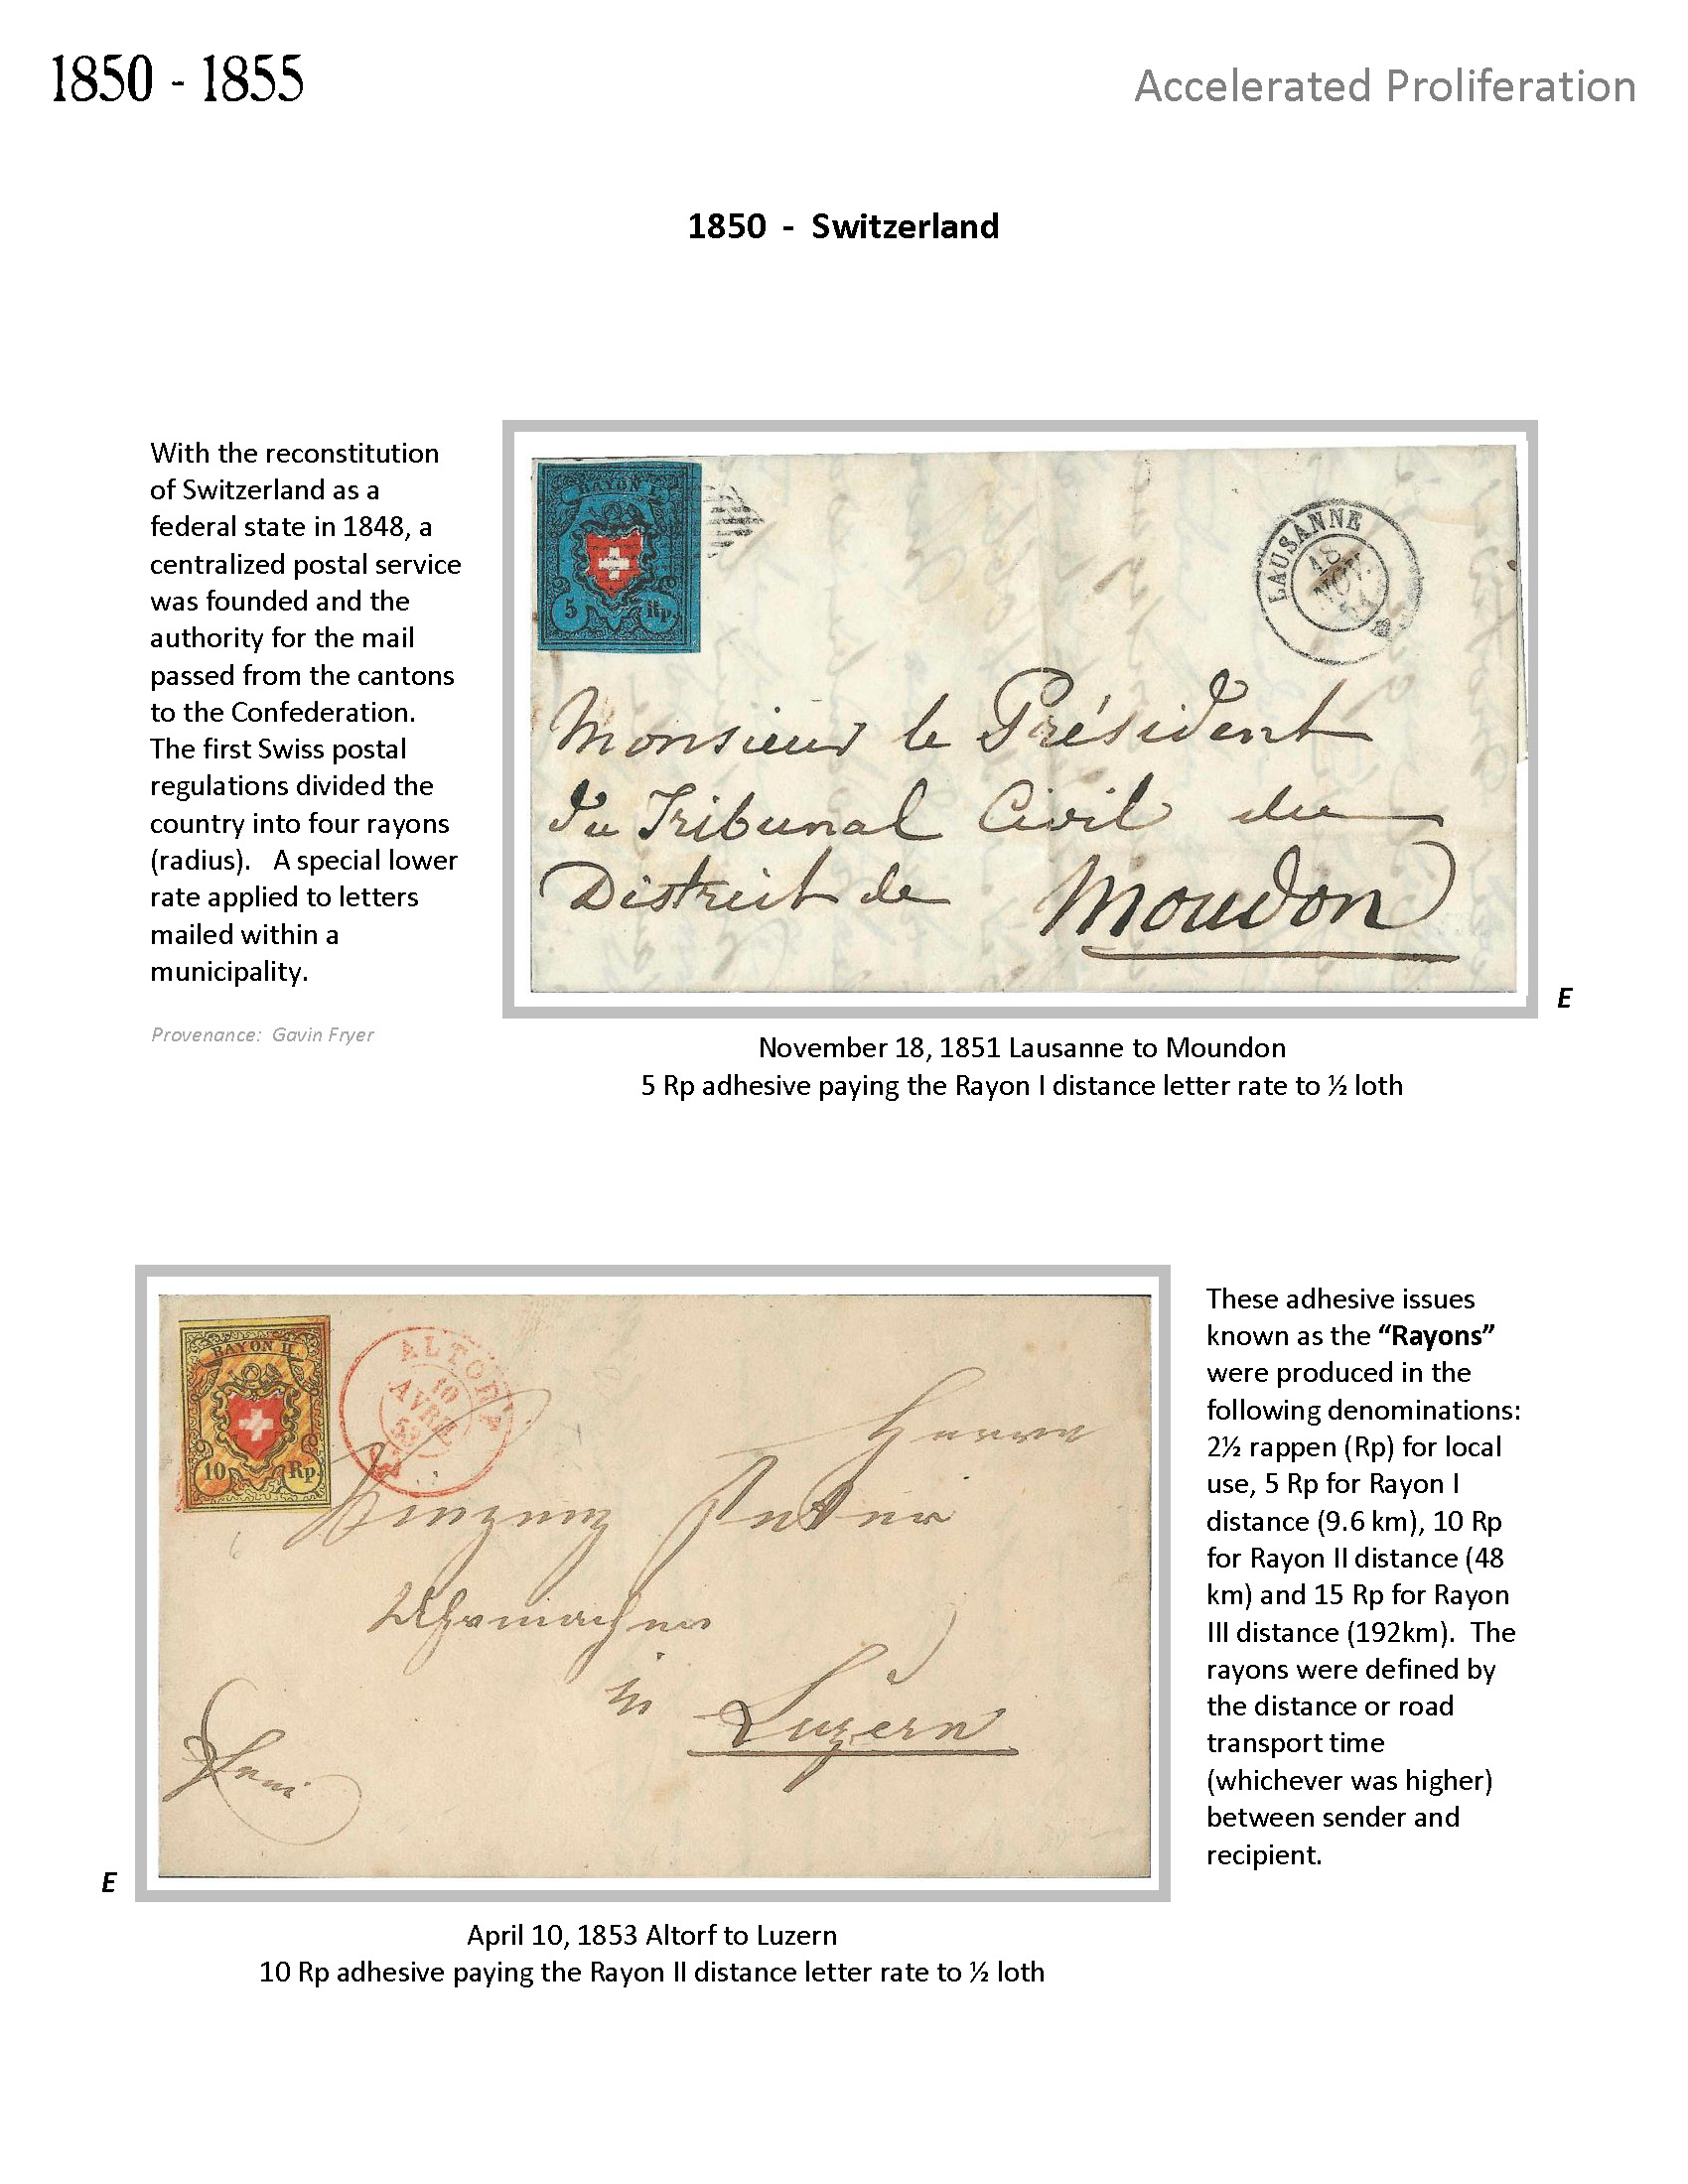 1850 - 1855
Accelerated Proliferation
1850 - Switzerland
With the reconstitution
of Switzerland as a
federal state in 1848, a
centralized postal service
was founded and the
authority for the mail
passed from the cantons
to the Confederation.
The first Swiss postal
regulations divided the
country into four rayons
(radius). A special lower
rate applied to letters
mailed within a
municipality.
Provenance: Gavin Fryer
RAYON I.
5 Rp.
LAUSANNE
18
NOV.
Monsieur le Président
du Tribunal Civil du
District de Moudon
E
November 18, 1851 Lausanne to Moundon
5 Rp adhesive paying the Rayon I distance letter rate to ½ loth
RAYON II.
10 Rp.
ALTORF
10
AVRIL
53
Herrn
Uhrmacher
in Luzern
E
April 10, 1853 Altorf to Luzern
10 Rp adhesive paying the Rayon II distance letter rate to ½ loth
These adhesive issues
known as the “Rayons”
were produced in the
following denominations:
2½ rappen (Rp) for local
use, 5 Rp for Rayon I
distance (9.6 km), 10 Rp
for Rayon II distance (48
km) and 15 Rp for Rayon
III distance (192km). The
rayons were defined by
the distance or road
transport time
(whichever was higher)
between sender and
recipient.